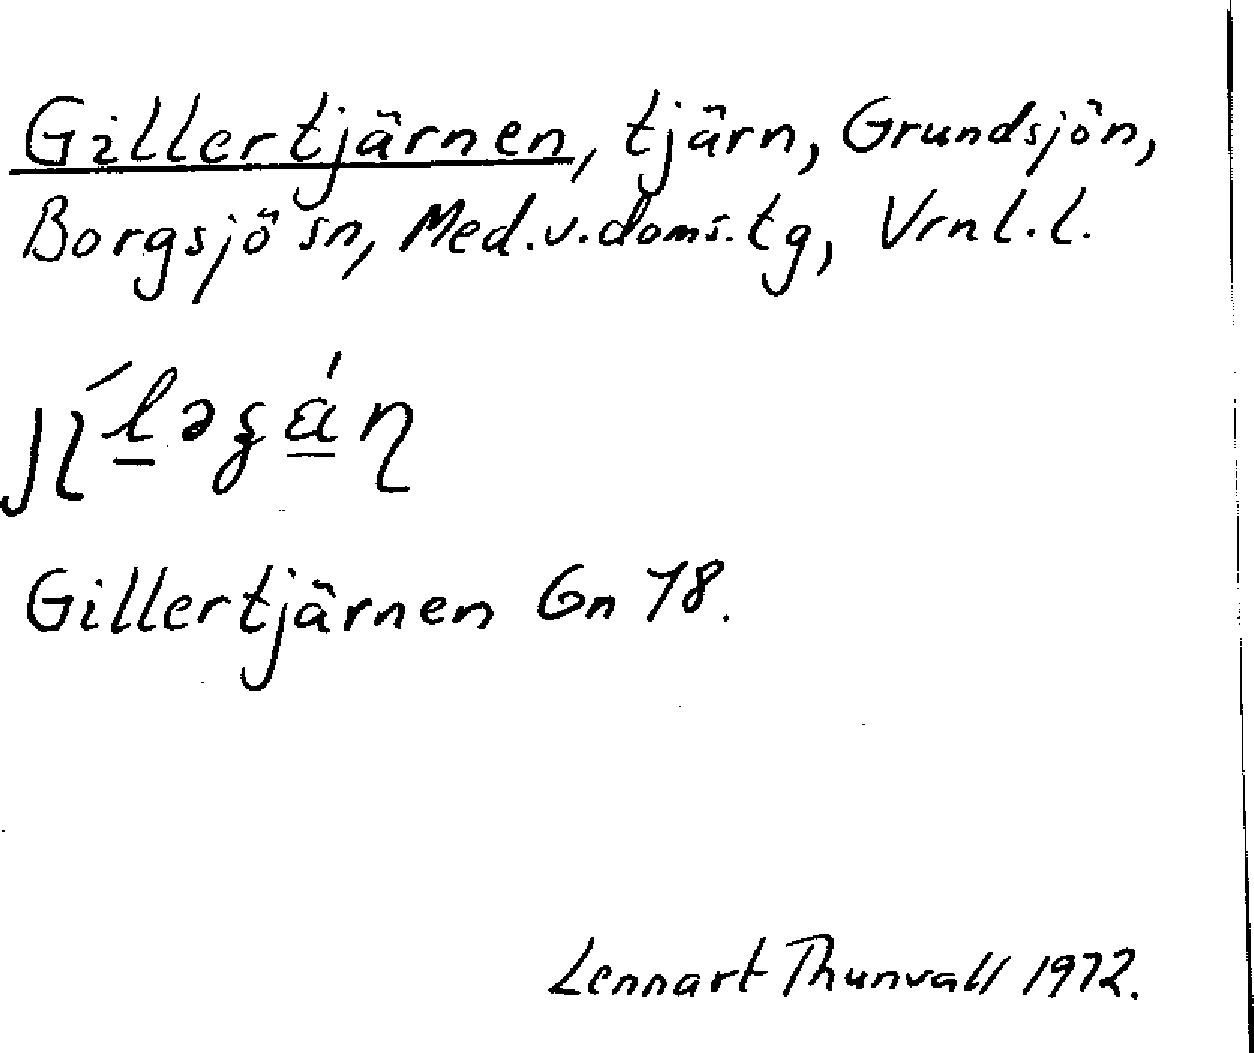 Gillertjärnen, tjärn, Grundsjön,
Borgsjö sn, Med.v.doms.tg, Vrnl.l.
Gillertjärnen Gn 78.
Lennart Thunvall 1972.